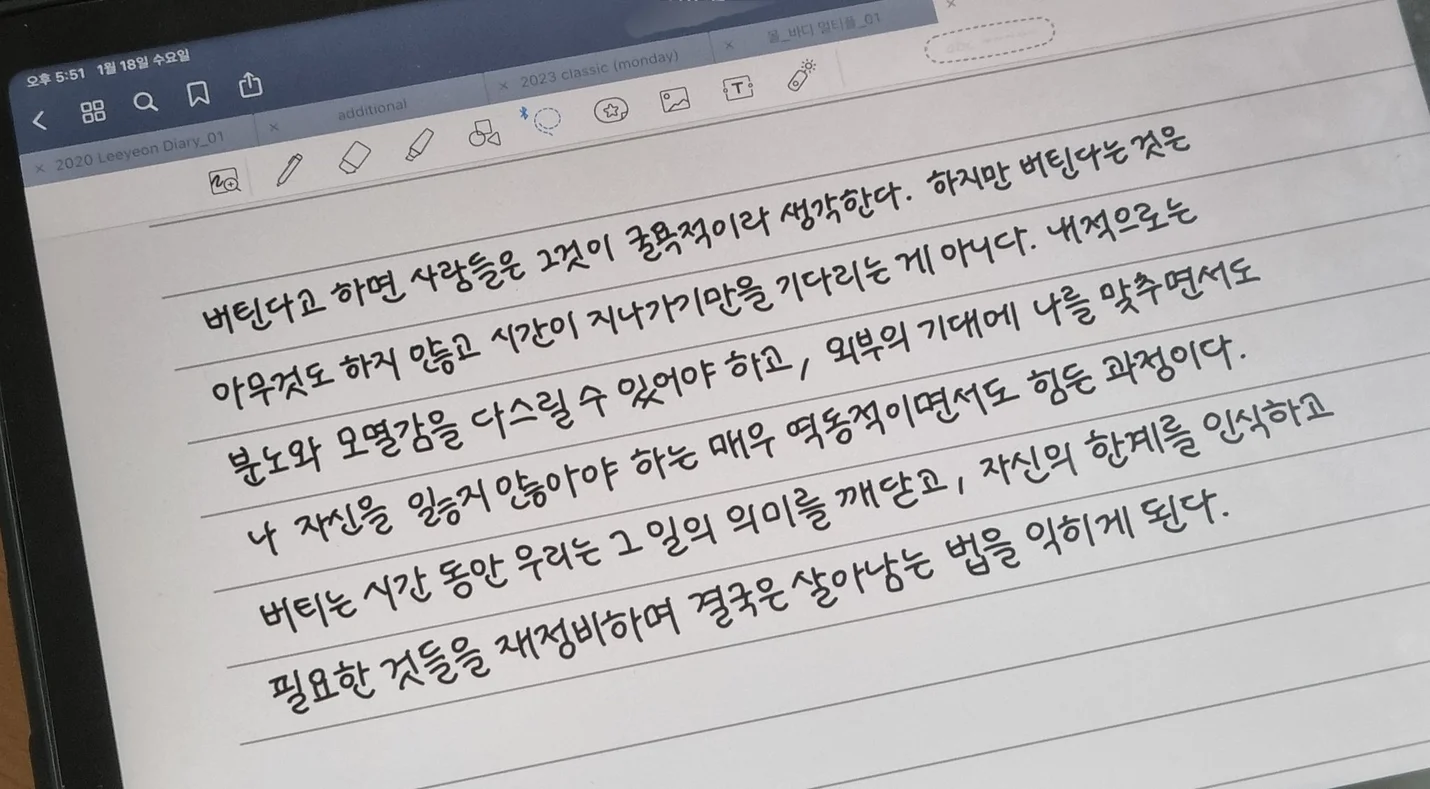 오후 5:51 1월 18일 수요일
2020 Leeyeon Diary_01
additional
2023 classic (monday)
몰_바디 멀티플_01
T
버틴다고 하면 사람들은 그것이 굴욕적이라 생각한다. 하지만 버틴다는 것은
아무것도 하지 않고 시간이 지나가기만을 기다리는 게 아니다. 내적으로는
분노와 모멸감을 다스릴 수 있어야 하고, 외부의 기대에 나를 맞추면서도
나 자신을 잃지 않아야 하는 매우 역동적이면서도 힘든 과정이다.
버티는 시간 동안 우리는 그 일의 의미를 깨닫고, 자신의 한계를 인식하고
필요한 것들을 재정비하며 결국은 살아남는 법을 익히게 된다.